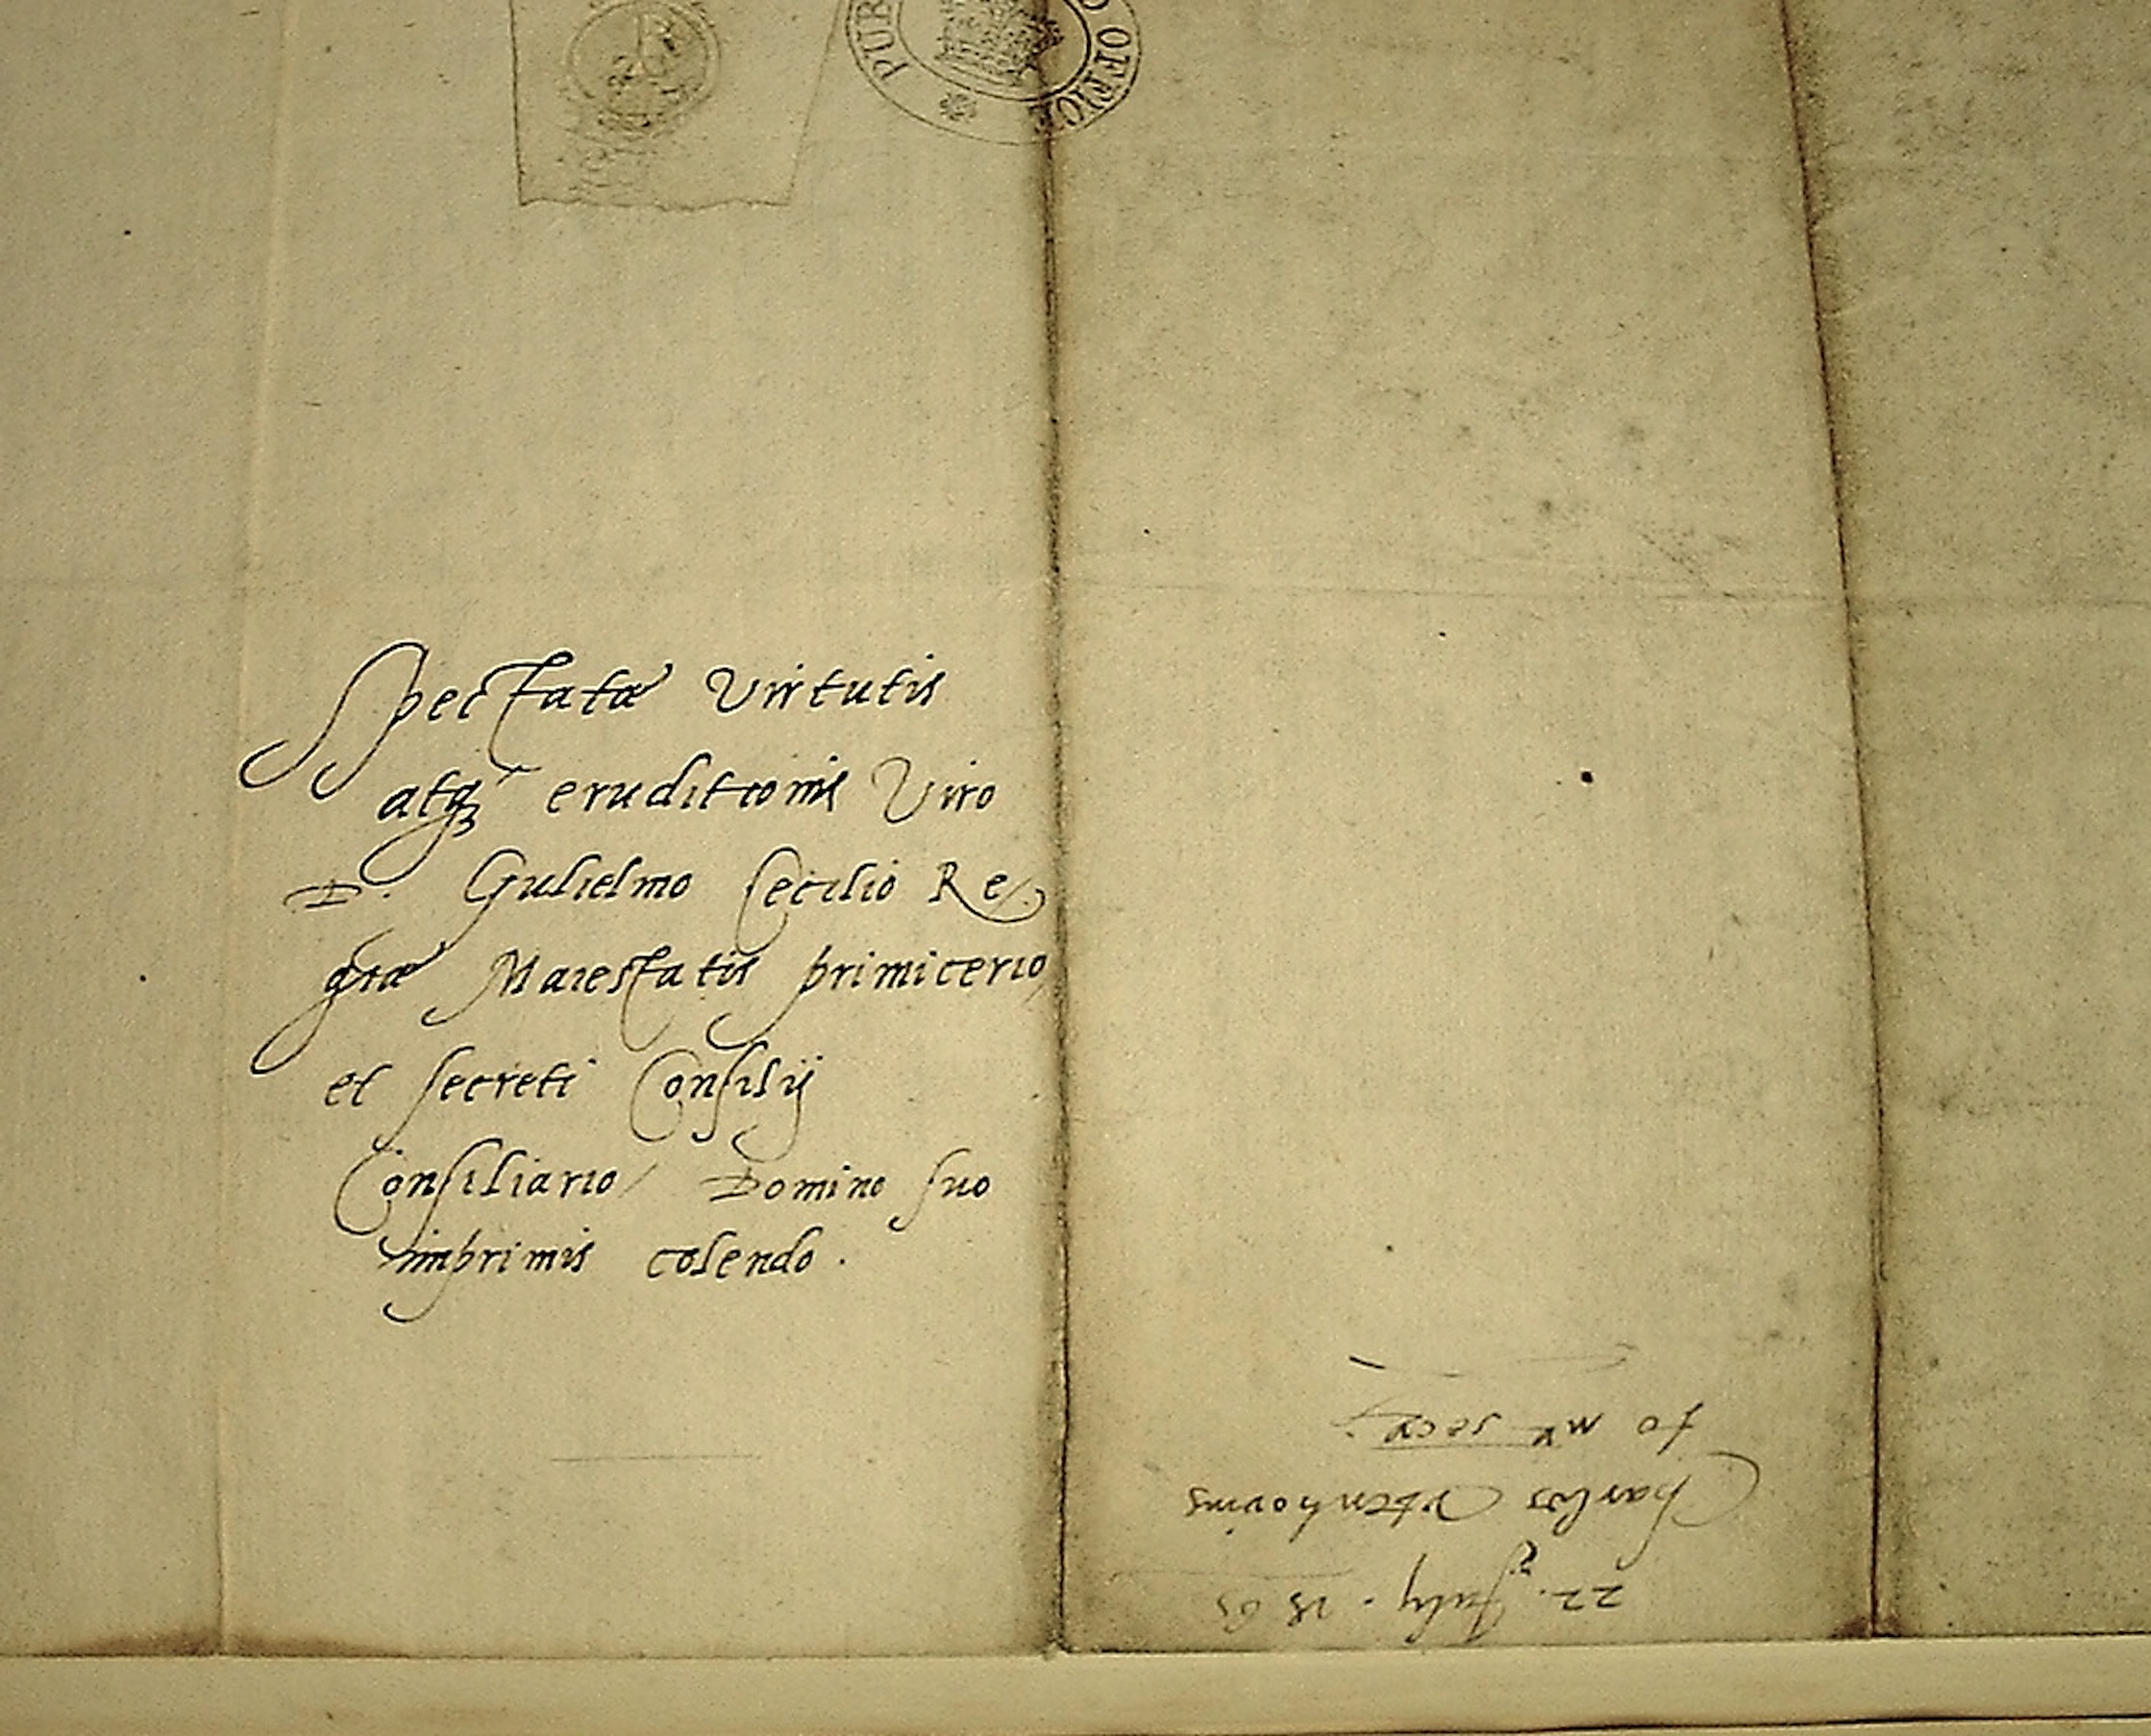 PUB
D OFFICE
Spectatæ Virtutis
atqꝫ eruditionis Viro
D. Gulielmo Cecilio Re-
giæ Maiestatis primicerio,
et secreti Consilij
Consiliario, Domino suo
imprimis colendo.
22. July. 1565
Charles Vtenhovius
to mr secr.